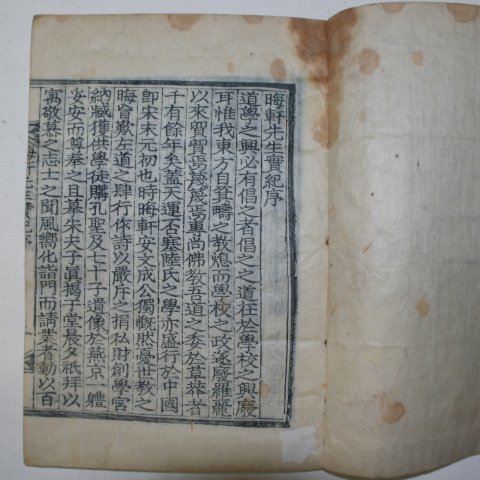 晦軒先生實紀序
道學之興必有倡之者倡之之道在於學校之興廢
耳惟我東方自箕疇之教熄而學校之政遂廢羅麗
以來貿貿蒙蒙專尚佛教吾道之委於草莽者
千有餘年矣蓋天運否塞陸氏之學亦盛行於中國
卽宋末元初也時晦軒安文成公獨慨然憂世教之
晦曾歎左道之肆行作詩以嚴斥之捐私財創學宮
納臧獲供學徒購孔聖及七十子遺像於燕京一軆
妥安而尊奉之且摹朱夫子眞揭于堂晨夕祇拜以
寓敬慕之志士之聞風嚮化詣門而請業者動以百